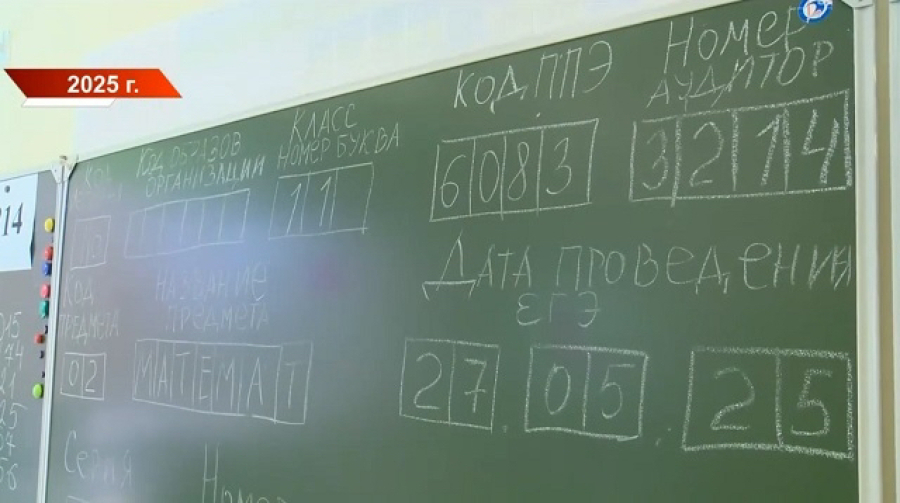 2025 г.
214
КОД
КОД ОБРАЗОВ
ОРГАНИЗАЦИИ
КЛАСС
НОМЕР БУКВА
11
КОД ППЭ
6083
Номер
АУДИТОР
3214
КОД
ПРЕДМЕТА
02
НАЗВАНИЕ
ПРЕДМЕТА
МАТЕМАТ
ДАТА ПРОВЕДЕНИЯ
ЕГЭ
27.05.25
Серия
Номер